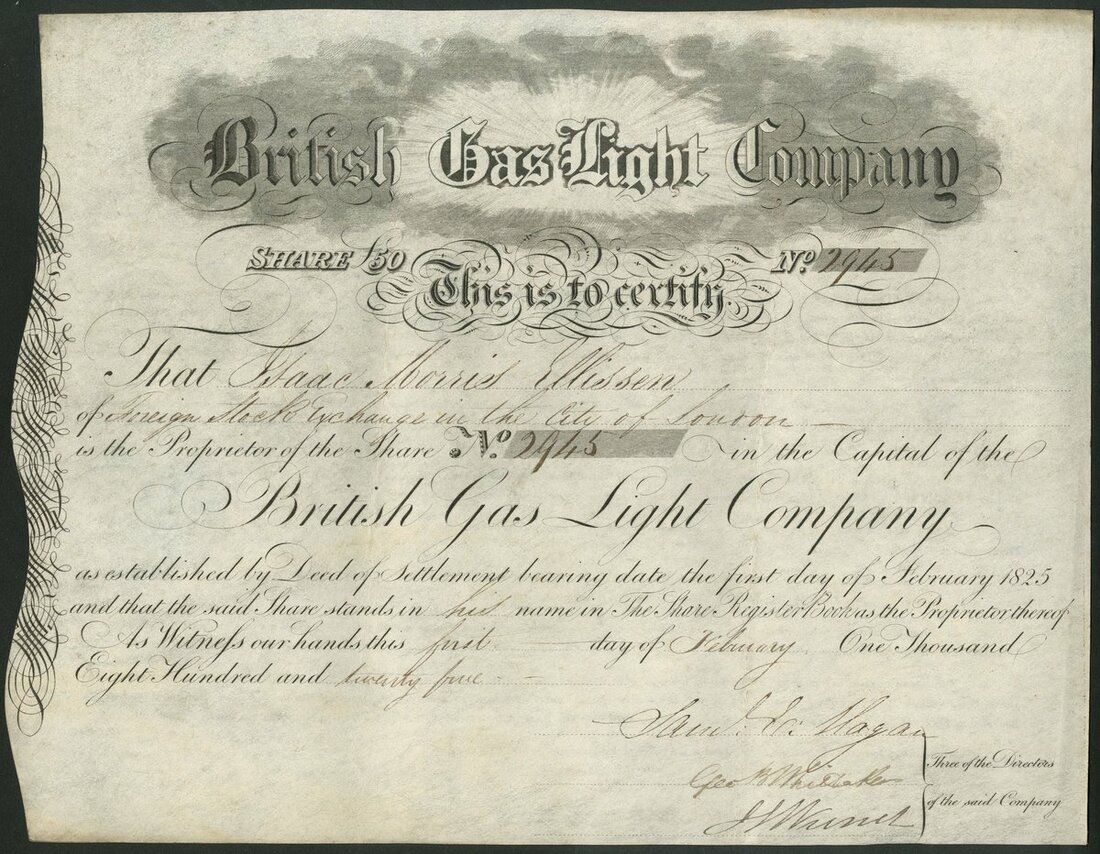 British Gas Light Company
SHARE £50 No. 2945
This is to certify.
That Isaac Morris Ellissen
of Foreign Stock Exchange in the City of London
is the Proprietor of the Share No. 2945 in the Capital of the
British Gas Light Company
as established by Deed of Settlement bearing date the first day of February 1825
and that the said Share stands in his name in The Share Register Book as the Proprietor thereof
As Witneſs our hands this first day of February One Thousand
Eight Hundred and twenty five
Three of the Directors
Geo B Whittaker
of the said Company